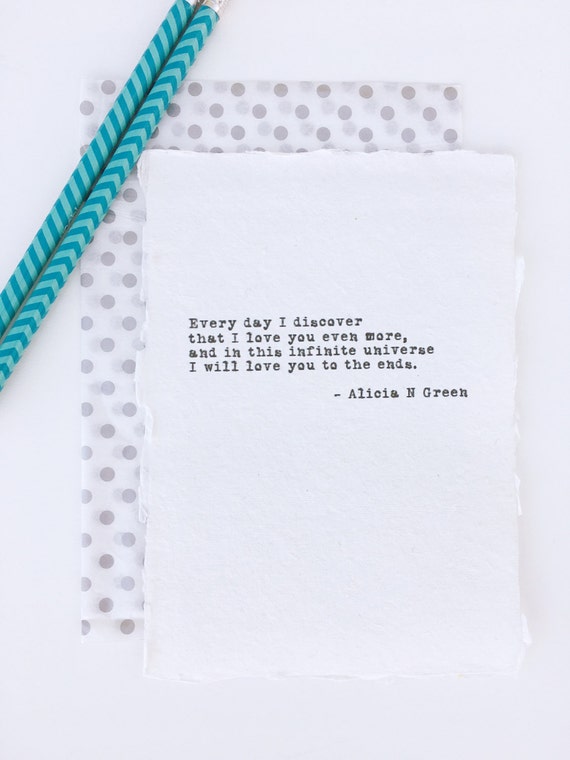 Every day I discover
that I love you even more,
and in this infinite universe
I will love you to the ends.
- Alicia N Green